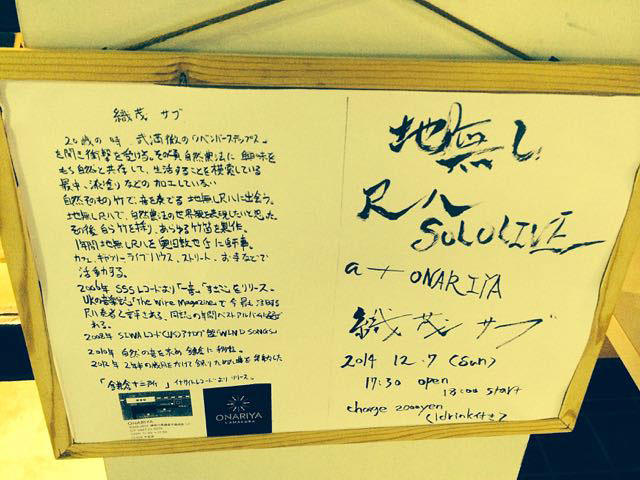 織茂 サブ
20歳の時 武満徹の「ノベンバーステップス」
を聞き衝撃を受ける。その頃 自然農法に 興味を
もち自然と共存して、生活することを模索している
最中、漆塗りなどの加工していない
自然そのもの竹で、音を奏でる 地無し尺八に出会う。
地無し尺八で、自然農法の世界観を表現したいと思った。
その後 自ら竹を採り、あらゆる竹笛を製作。
年間 地無し尺八を奥田敦也に師事。
カフェ、ギャラリー、ライブハウス、ストリート、お寺などで
活動する。
2006年 SSSレコードより「一音、すさこ」をリリース。
UKの音楽誌「The Wire Magazine」で 今最も注目する
尺八奏者と評される、同誌の年間ベストアルバムに選ば
れる。
2008年 SLWAレコード(US)アナログ盤「WIND SONGS」
2010年 自然の音を求め 鎌倉に移住。
2012年 2年の歳月をかけて録りためた曲を
「鎌倉十二所」 リリース。
ONARIYA
ONARIYA
KAMAKURA
地無し
尺八
SOLO LIVE
at ONARIYA
織茂 サブ
2014 12.7 (Sun)
17:30 open
18:00 start
charge 2000yen
(1drink付き)